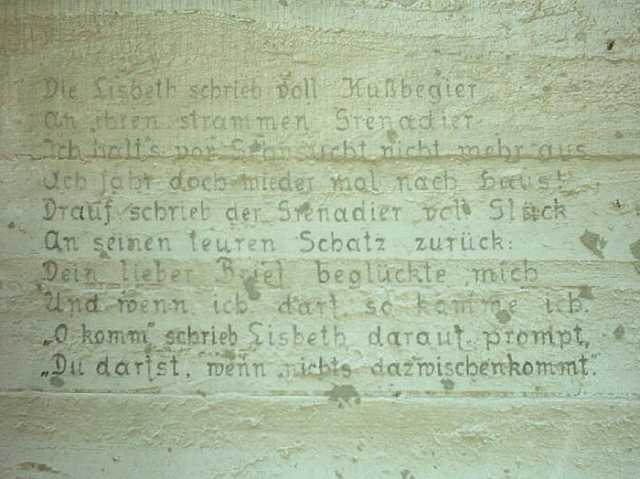 Die Lisbeth schrieb voll Kußbegier
An ihren strammen Grenadier
Ich halt's vor Sehnsucht nicht mehr aus
Ach fahr doch wieder mal nach Haus!
Drauf schrieb der Grenadier voll Glück
An seinen teuren Schatz zurück:
Dein lieber Brief beglückte mich
Und wenn ich darf so komme ich.
„O komm" schrieb Lisbeth darauf prompt,
„Du darfst, wenn nichts dazwischenkommt".